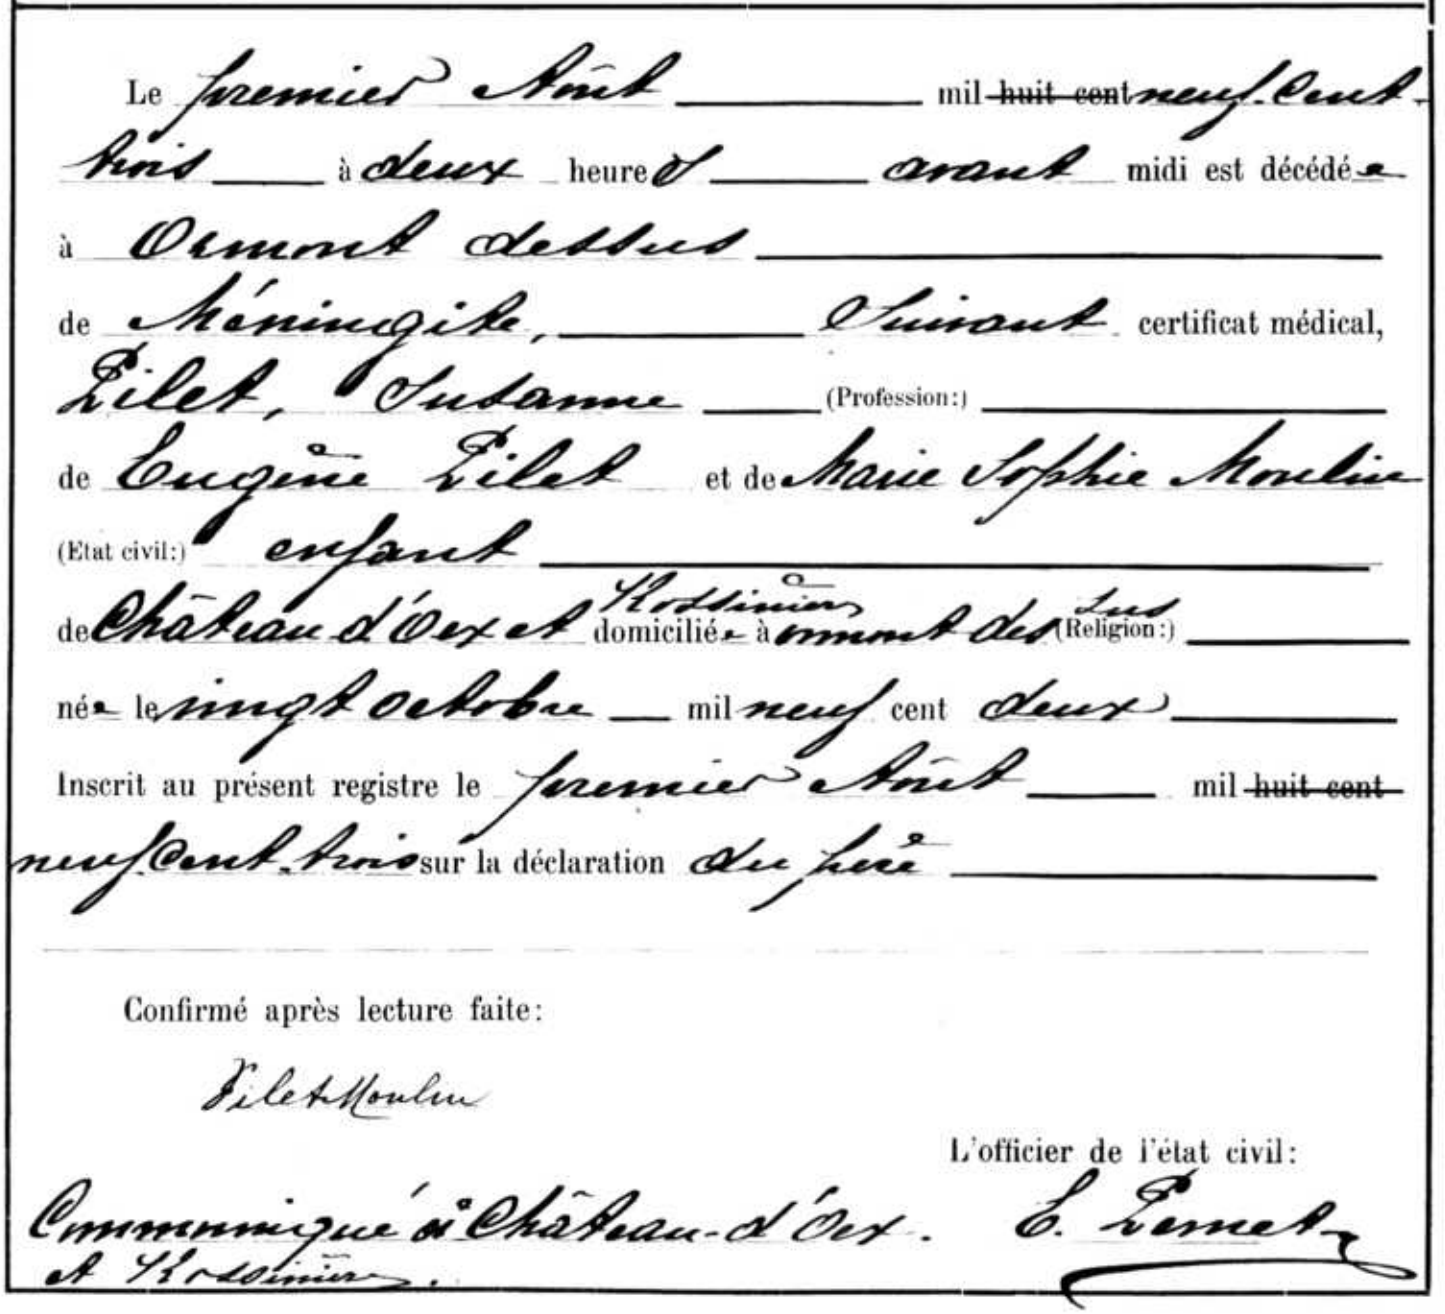 Le premier Août mil huit cent neuf. Cent.
trois à deux heures avant midi est décédée
à Ormont dessus
de Méningite, Suivant certificat médical,
Pilet, Susanne (Profession:)
de Eugène Pilet et de Marie Sophie Moulin
(Etat civil:) enfant
Rossinière
de Château d'Oex et domiciliée à ormont dessus (Religion:)
née le vingt octobre mil neuf cent deux
Inscrit au présent registre le premier Août mil huit cent
neuf. Cent. trois sur la déclaration du père
Confirmé après lecture faite:
Pilet Moulin
L'officier de l'état civil:
Communiqué à Château-d'Oex. E.
et Rossinière.